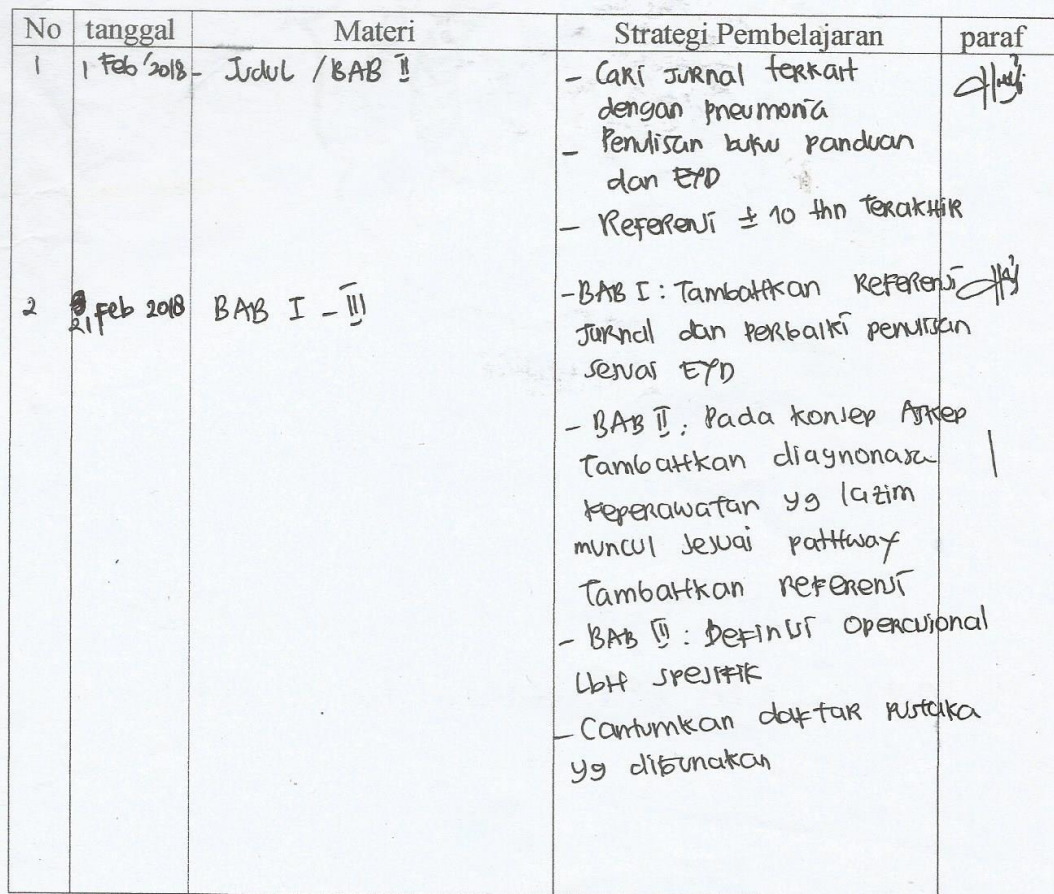 No tanggal Materi Strategi Pembelajaran paraf
1 1 Feb '2018 - Judul / BAB II - Cari Jurnal terkait
dengan pneumonia
- Penulisan buku panduan
dan EYD
- Referensi ± 10 thn Terakhir
2 21 Feb 2018 BAB I - III - BAB I : Tambahkan Referensi
Jurnal dan perbaiki penulisan
sesuai EYD
- BAB II : Pada konsep Askep
Tambahkan diagnonasa
keperawatan yg lazim
muncul sesuai pathway
Tambahkan referensi
- BAB III : Definisi operasional
Lbh spesifik
- Cantumkan daftar pustaka
yg digunakan